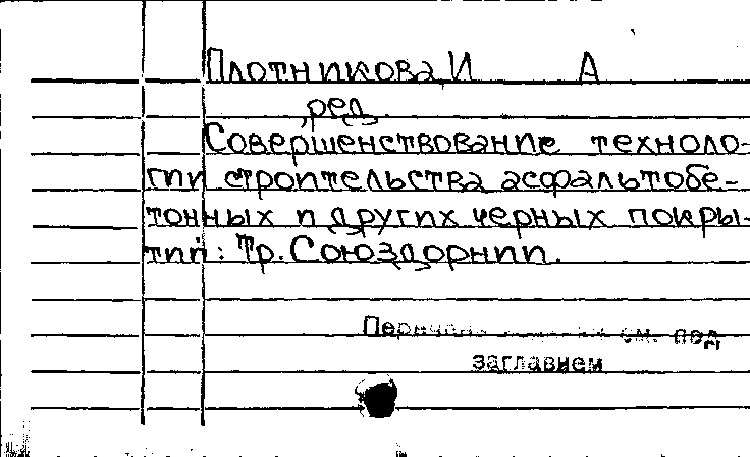 Плотникова И А
, ред.
Совершенствование техноло-
гии строительства асфальтобе-
тонных и других черных покры-
тий: Тр. Союздорнии.
см. под
заглавием